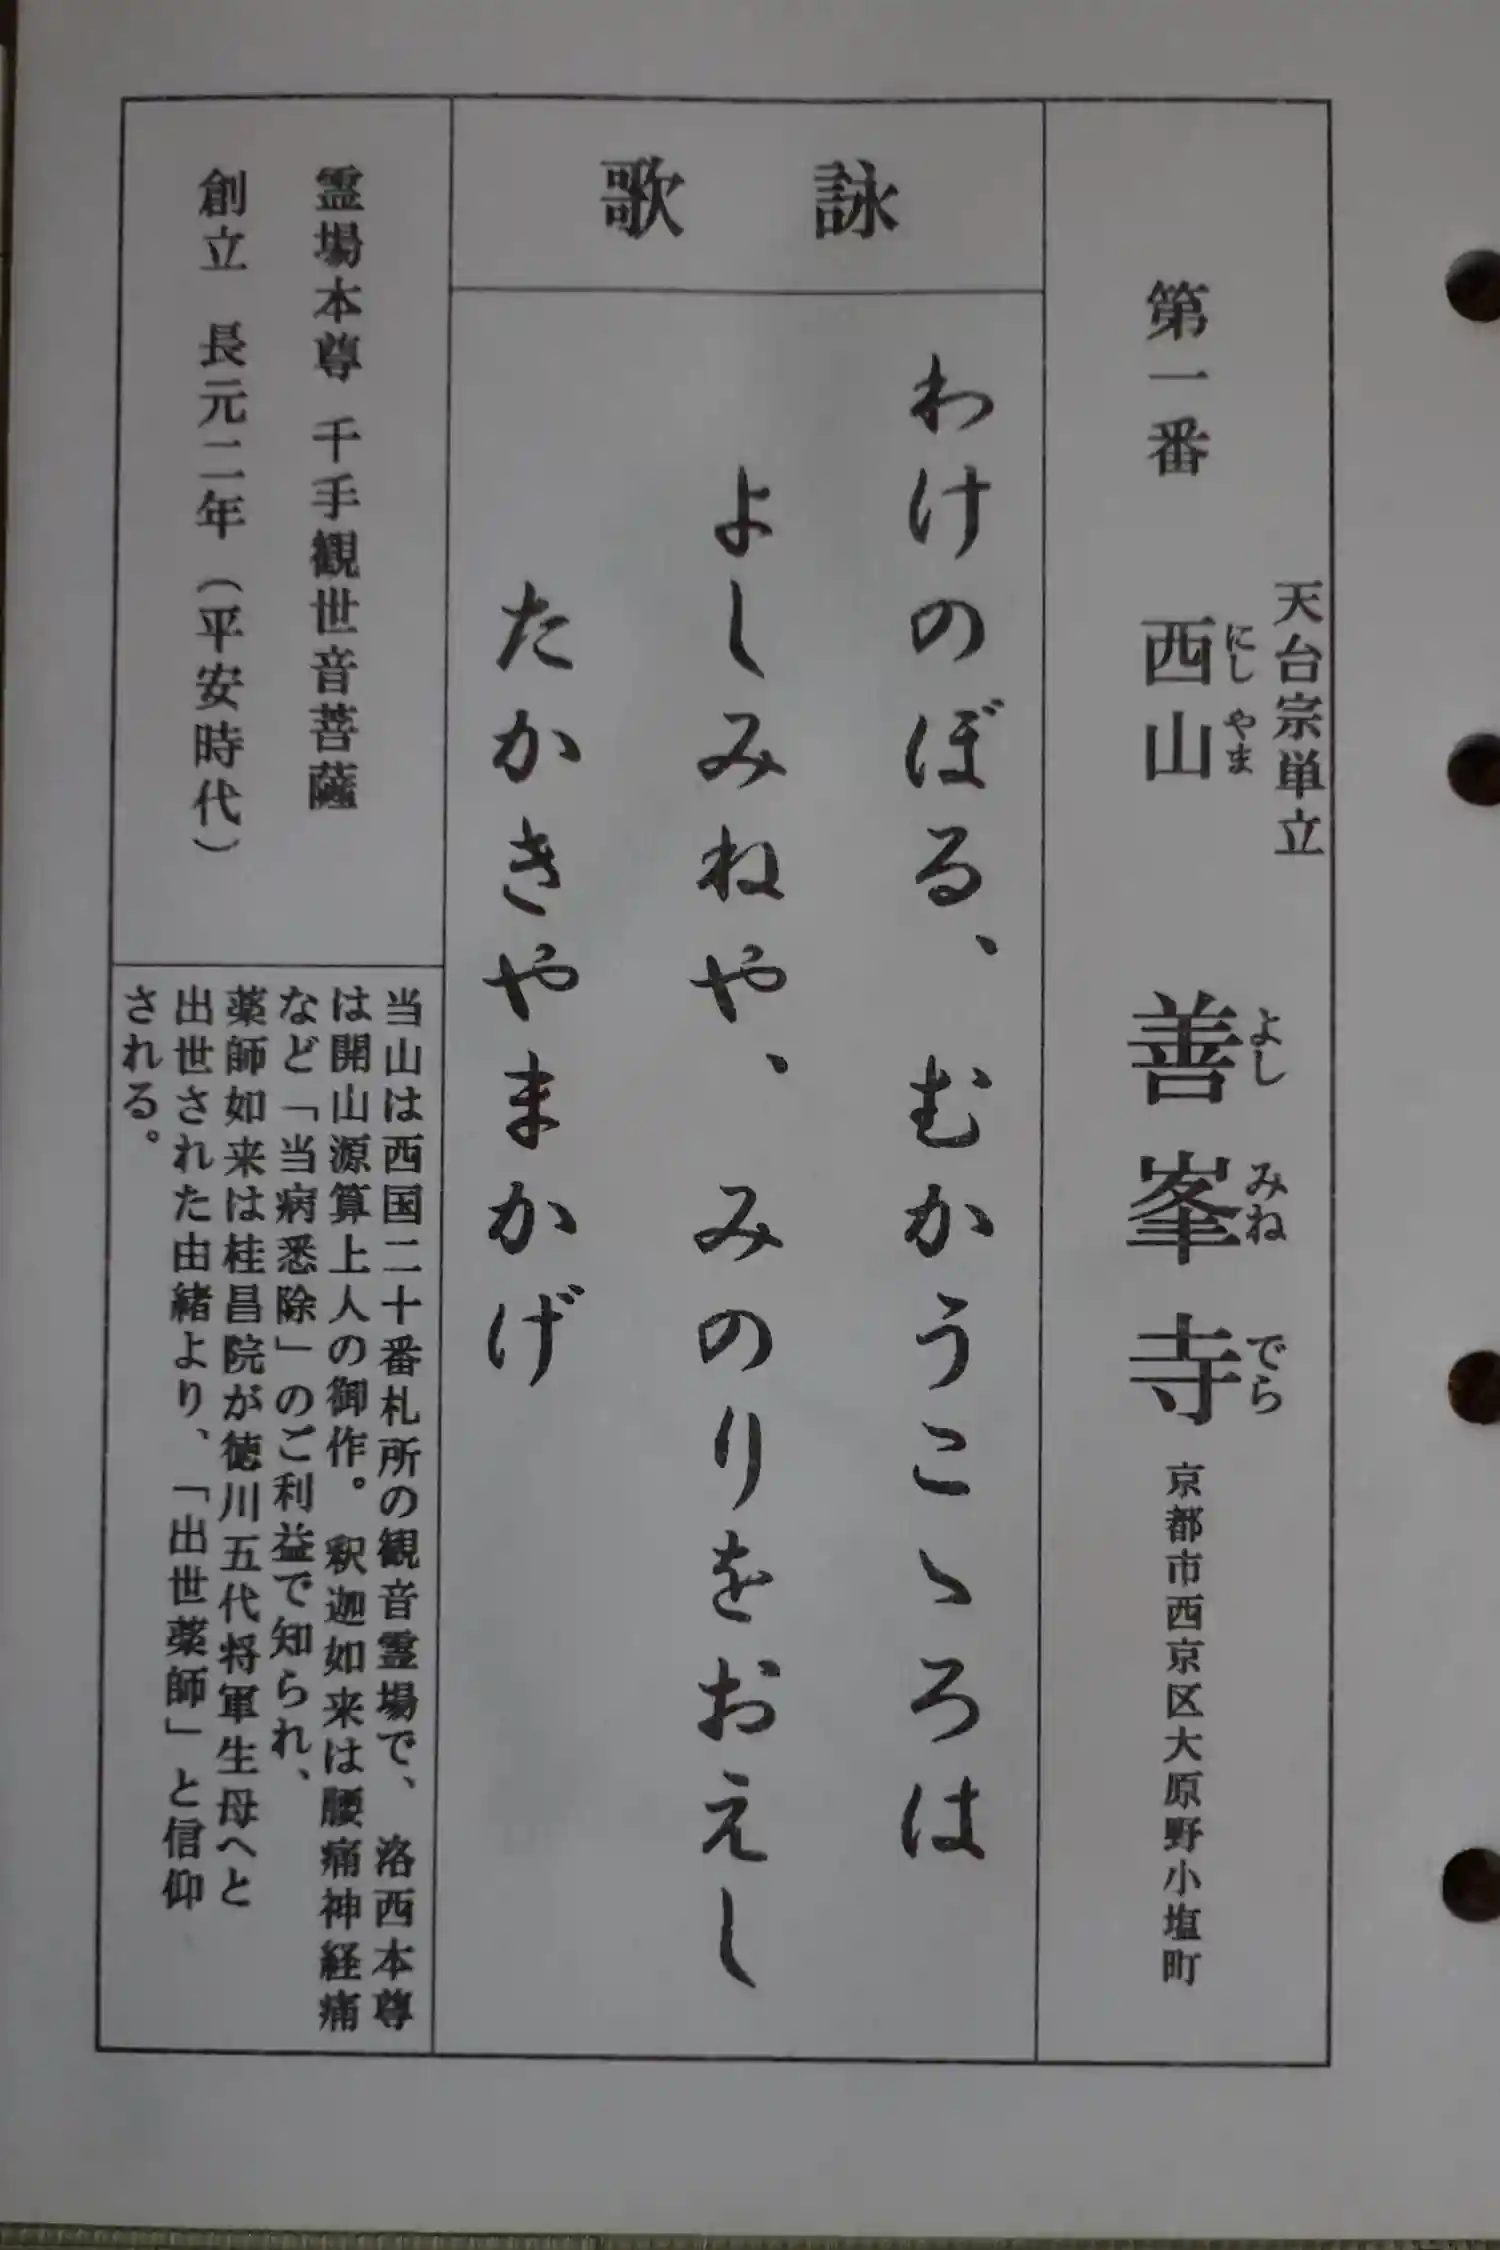 天台宗単立
第一番 西山 善峯寺 京都市西京区大原野小塩町
にし やま よし みね でら
詠歌
わけのぼる、むかうこゝろは
よしみねや、みのりをおえし
たかきやまかげ
霊場本尊 千手観世音菩薩
創立 長元二年(平安時代)
当山は西国二十番札所の観音霊場で、洛西本尊
は開山源算上人の御作。釈迦如来は腰痛神経痛
など「当病悉除」のご利益で知られ、
薬師如来は桂昌院が徳川五代将軍生母へと
出世された由緒より、「出世薬師」と信仰
される。